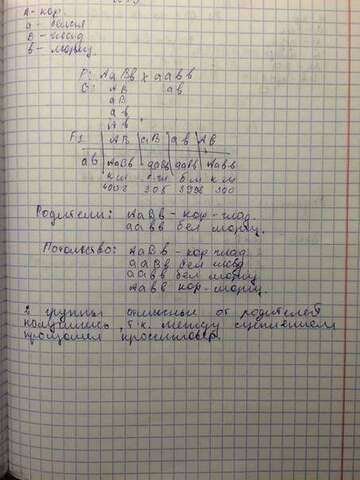 A - кор.
a - белая
B - глад
b - морщ
P: AaBb x aabb
G: AB ab
aB
ab
Ab
F1 | AB | aB | ab | Ab
ab | AaBb | aaBb | aabb | Aabb
к гл б гл б м к м
Родители: AaBb - кор - глад.
aabb бел морщ.
Потомство: AaBb - кор глад
aaBb бел глад
aabb бел морщ
Aabb кор - морщ.
2 группы отличные от родителей
получились, т.к. между сцеплением
произошел кроссинговер.